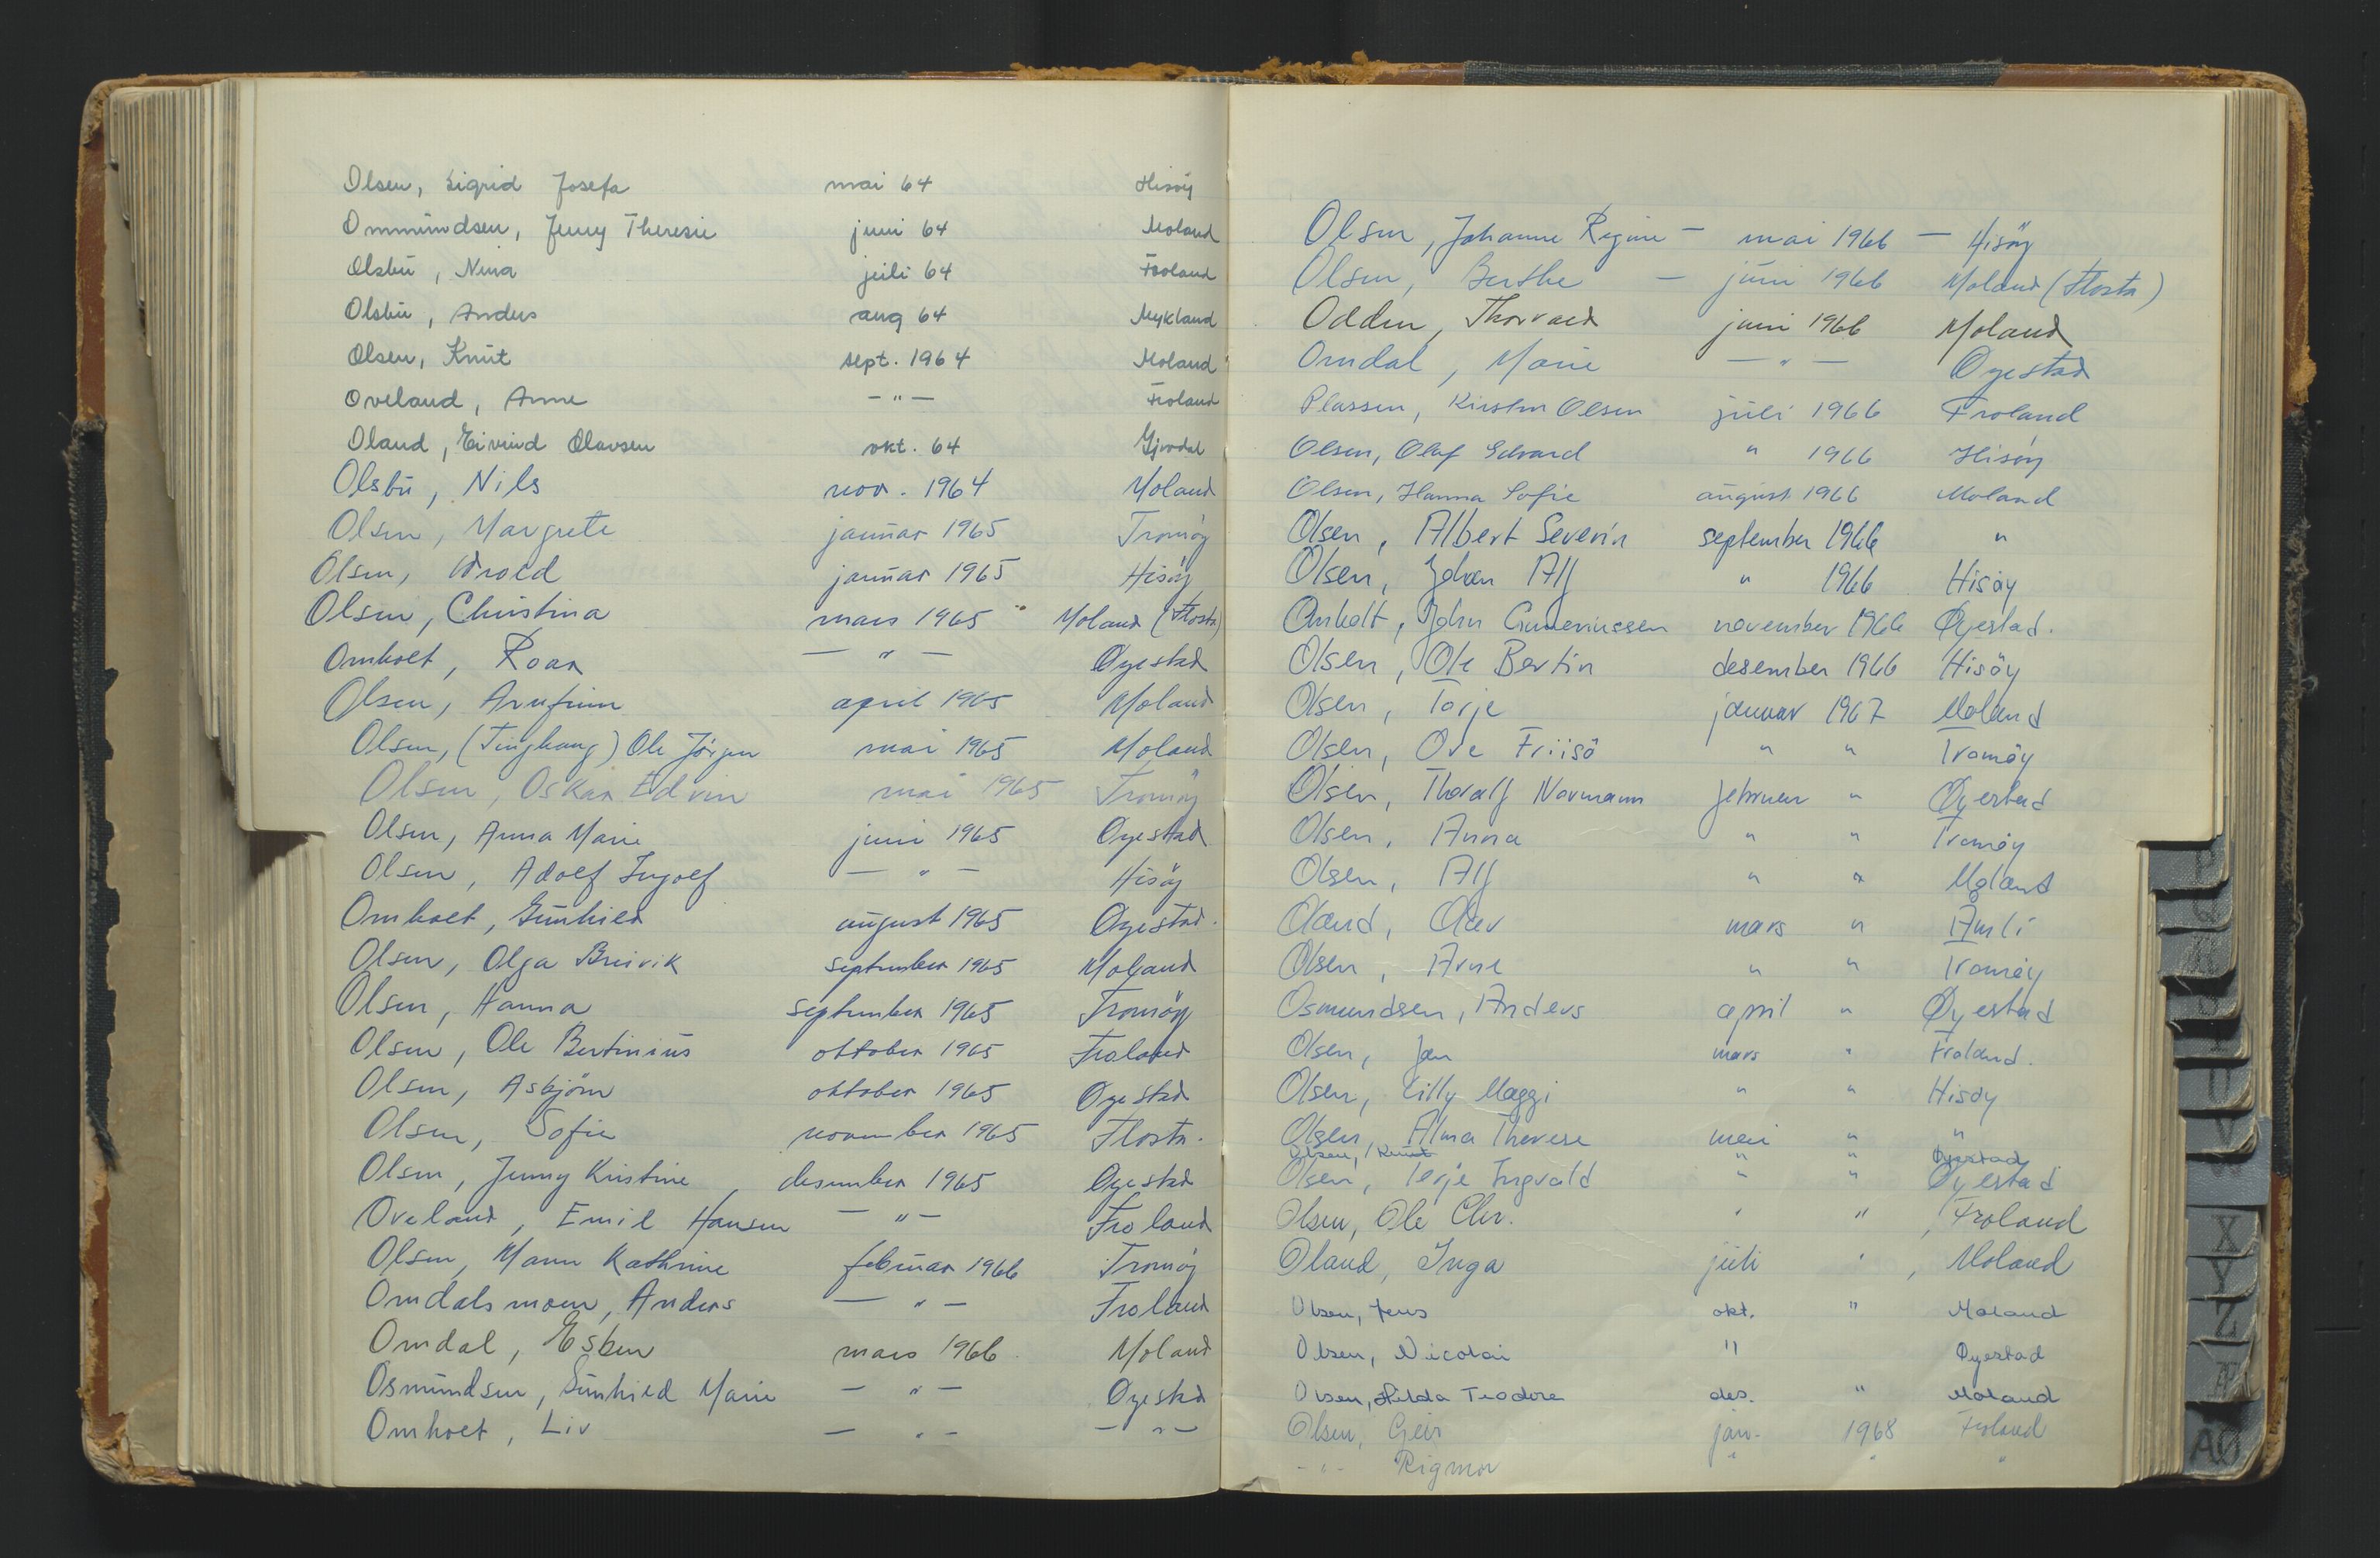 Olsen, Sigrid Josefa mai 64 Hisöy
Ommundsen, Jenny Theresie juni 64 Moland
Olsbu, Nina juli 64 Froland
Olsbu, Anders aug 64 Mykland
Olsen, Knut sept. 1964 Moland
Oveland, Anne — " — Froland
Oland, Eivind Olavsen okt. 64 Gjövdal
Olsbu, Nils nov. 1964 Moland
Olsen, Margrete januar 1965 Tromöy
Olsen, januar 1965 Hisöy
Olsen, Christina mars 1965 Moland (Flosta)
Omholt, Roar — " — Øyestad
Olsen, Arnfinn april 1965 Moland
Olsen, (Tinghaug) Ole Jörgen mai 1965 Moland
Olsen, Oskar Edvin mai 1965 Tromöy
Olsen, Anna Marie juni 1965 Øyestad
Olsen, Adolf Ingolf — " — Hisöy
Omholt, Gunhild august 1965 Øyestad.
Olsen, Olga Breivik september 1965 Moland
Olsen, Hanna september 1965 Tromöy
Olsen, Ole Bertinius oktober 1965 Froland
Olsen, Asbjörn oktober 1965 Øyestad
Olsen, Sofie november 1965 Flosta.
Olsen, Jenny Kristine, desember 1965 Øyestad
Oveland, Emil Hansen — " — Froland
Olsen, Mann Kathrine februar 1966 Tromöy
Omdalsmoen, Anders — " — Froland
Omdal, Esben mars 1966 Moland
Osmundsen, Gunhild Marie — " — Øyestad
Omholt, Liv — " — — " —
Olsen, Johanne Regine — mai 1966 — Hisöy
Olsen, Berthe — juni 1966 Moland (Flosta)
Odden, Thorvald juni 1966 Moland
Omdal, Marie — " — Øyestad
Plassen, Kirsten Olsen juli 1966 Froland
Olsen, Olaf Edvard " 1966 Hisöy
Olsen, Hanna Sofie august 1966 Moland
Olsen, Albert Severin september 1966 "
Olsen, Johan Alf " 1966 Hisöy
Omholt, John Gunerinssen november 1966 Øyestad.
Olsen, Ole Bertin desember 1966 Hisöy
Olsen, Torje januar 1967 Moland
Olsen, Ove Friisö " " Tromöy
Olsen, Thoralf Normann februar " Øyestad
Olsen, Anna " " Tromöy
Olsen, Alf " " Moland
Oland, Olav mars " Åmli
Olsen, Arne " " Tromöy
Osmundsen, Anders april " Øyestad
Olsen, Jan mars " Froland.
Olsen, Lilly Maggi " " Hisöy
Olsen, Alma Therese mai " "
Olsen, Knut " " Øyestad
Olsen, Terje Ingvald " " Øyestad
Olsen, Ole Chr. " " , Froland
Oland, Inga juli " , Moland
Olsen, Jens okt. " Moland
Olsen, Nicolai " Øyestad
Olsen, Hilda Teodore des. " Moland
Olsen, Geir jan. 1968 Froland
- " - Rigmor " " "
P
X
Y
Z
Æ
AØ